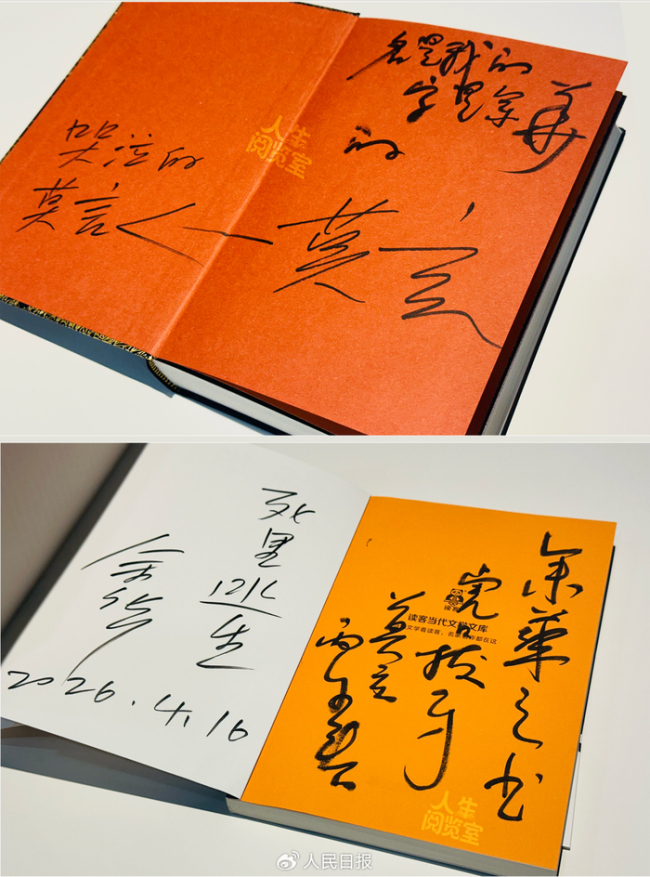 名是我的
字是余华
的
莫言
哭泣的
莫言
人生
阅览室
死里逃生
余华
2026.4.16
余华之书
虎口拔牙
莫言
丙午
读客当代文学文库
文学看读客,名家名作都在这
人生
阅览室
人民日报